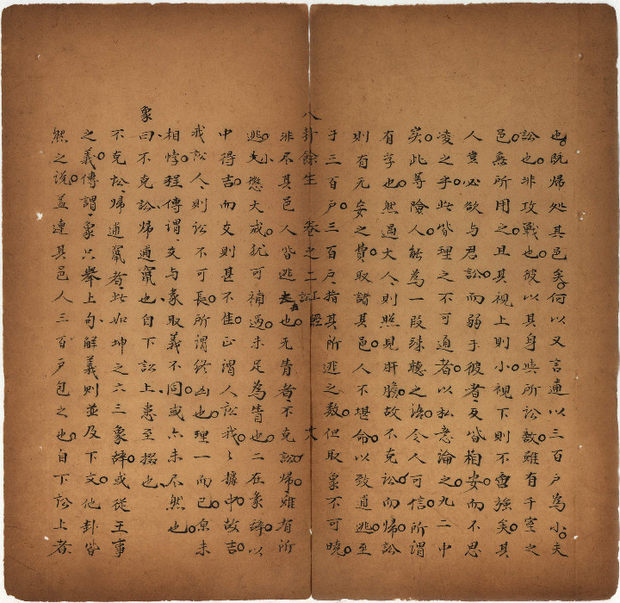 也既歸処其邑矣何以又言逋以三百戸為小夫
訟也非攻戰也彼以其身与所訟敵雖有千室之
邑無所用之且其視上則小視下則不啻強矣其
人豈必欲与君訟而弱于彼者反皆相安而不思
凌之乎此皆理之不可通者以私意論之九二中
英此等險人能為一段殊聴之語令人可信所謂
有孚也然遇大人則照見肝膽故不克訟而歸訟
則有元安之費取諸其邑人不堪命以致逋逃至
于三百戸三百戸指其所逃之数但取象不可曉
八卦餘生 卷之二 訟 上經 六
非尽其邑人皆逃去也无眚者不克訟歸雖有所
逃失懲大戒犹可補過未足為眚也二在彖辞以
中得吉而爻則甚不佳正謂人訟我我據中故吉
我訟人則訟不可長所謂終凶也理一而已原未
相悖程傳謂爻与彖取義不同或亦未不然也
象
曰不克訟歸逋竄也自下訟上患至掇也
不克訟歸逋竄者此如坤之六三象辞或從王事
之義傳謂象只舉上句解義則並及下文他卦皆
然之説蓋連其邑人三百戸包之也自下訟上者